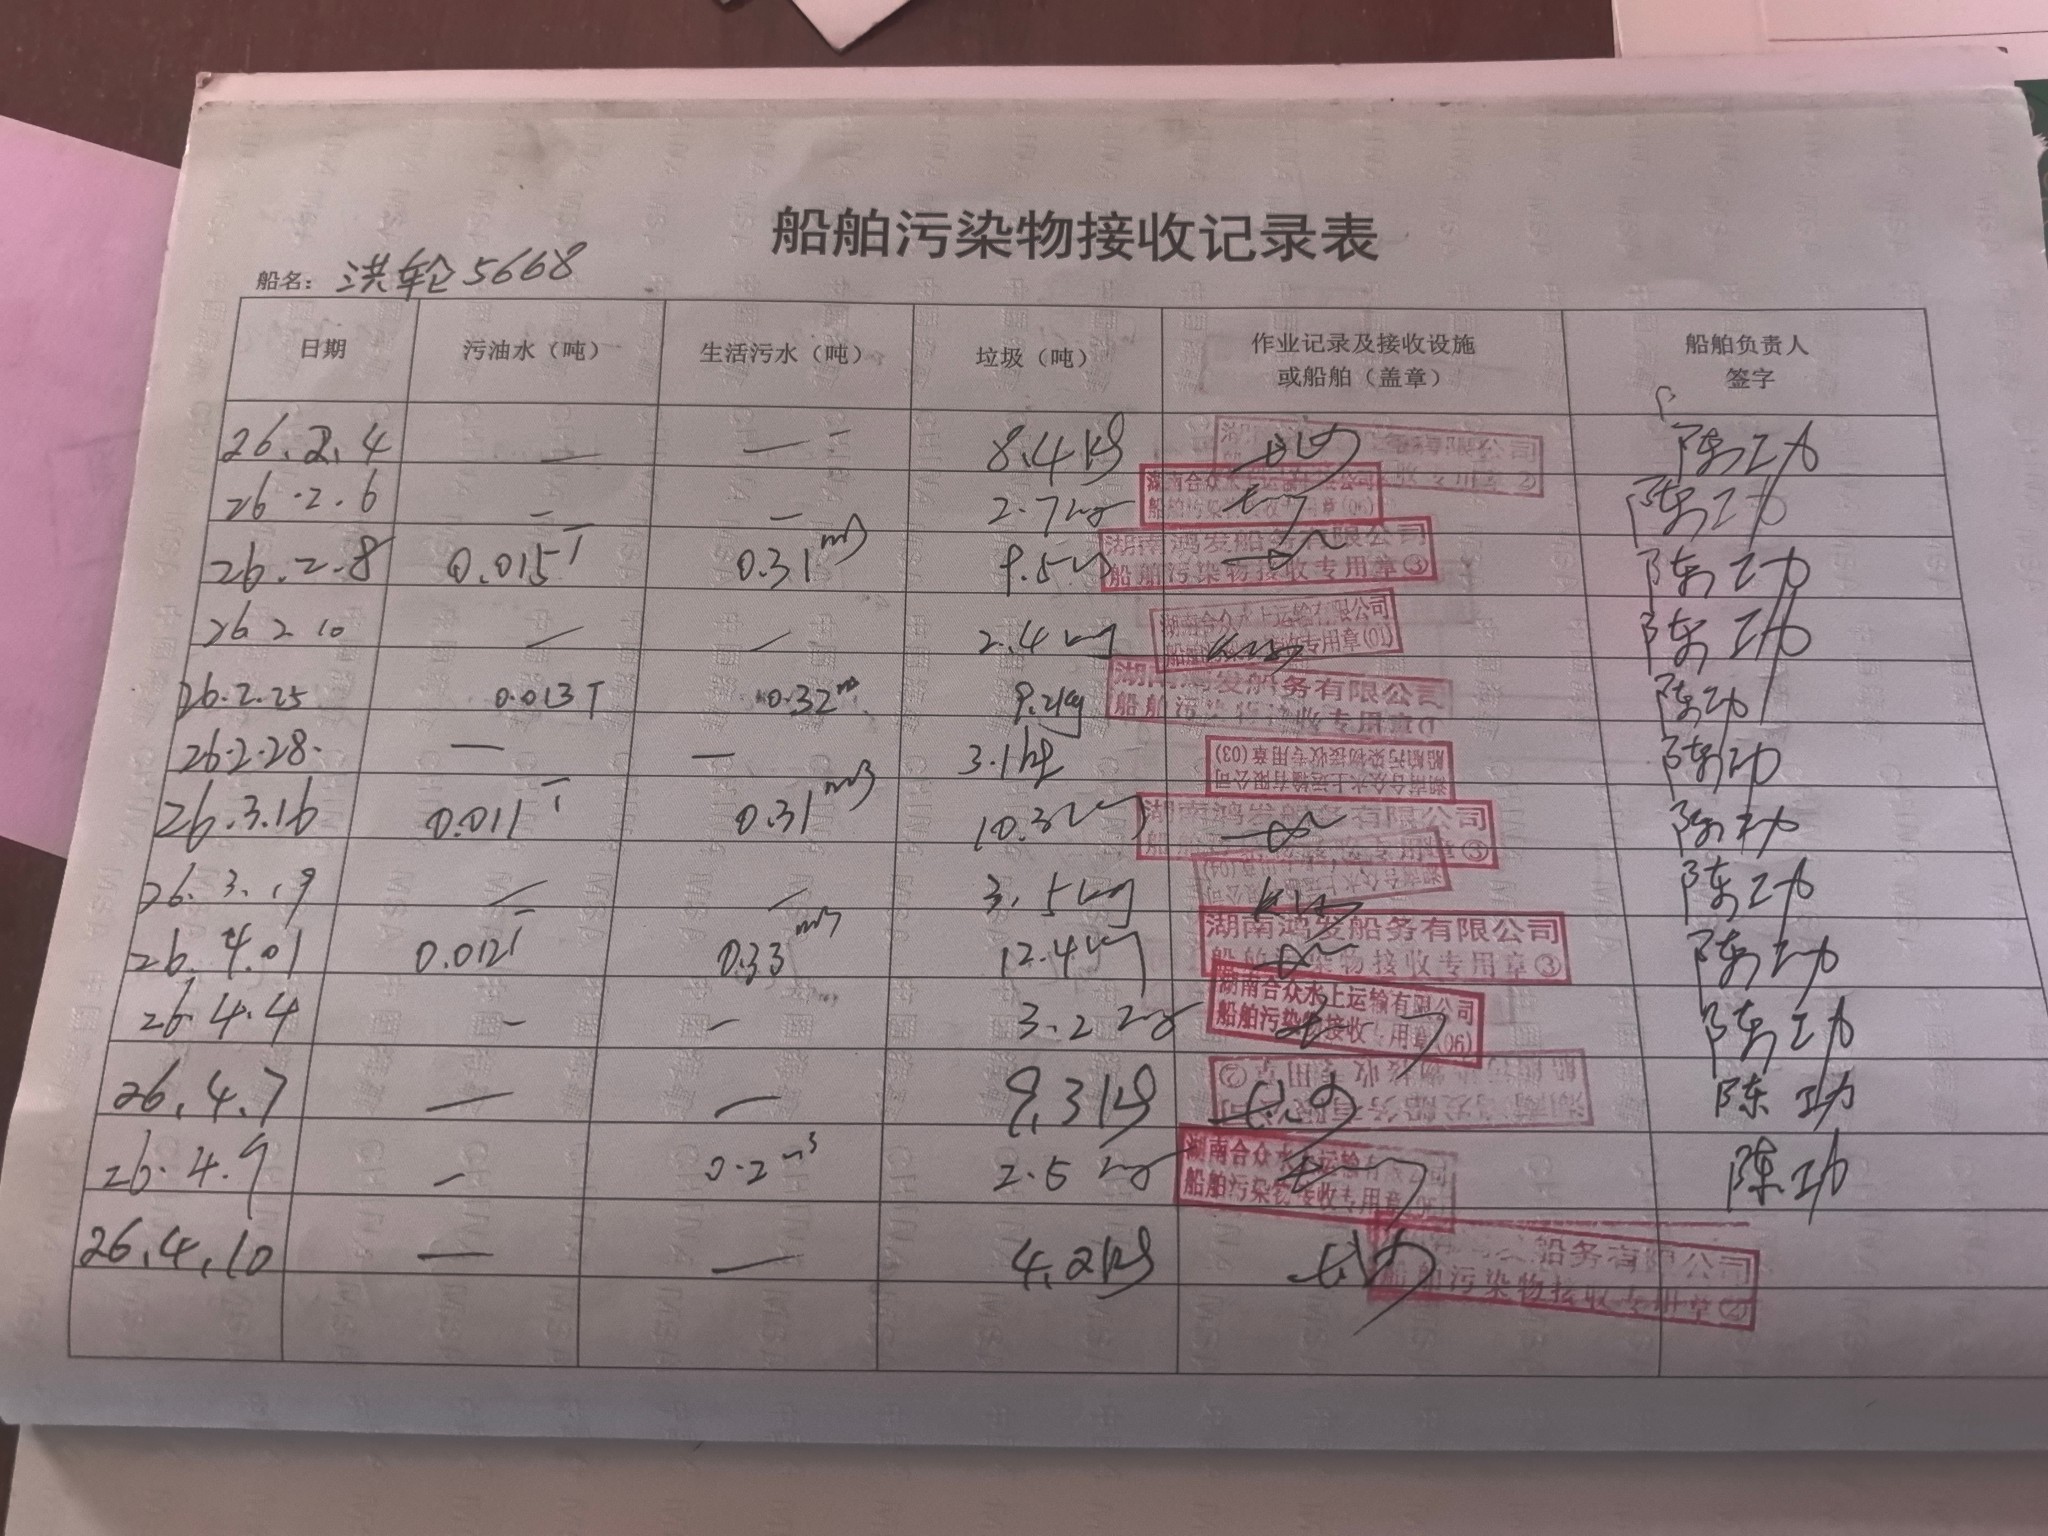 船舶污染物接收记录表
船名：洪轮5668
日期 污油水（吨） 生活污水（吨） 垃圾（吨） 作业记录及接收设施或船舶（盖章） 船舶负责人签字
26.2.4 — — 8.4kg 陈功
26.2.6 — — 2.7kg 湖南合众水上运输有限公司 船舶污染物接收专用章(06) 陈功
26.2.8 0.015T 0.31m3 9.5kg 湖南鸿发船务有限公司 船舶污染物接收专用章③ 陈功
26 2 10 — — 2.4kg 湖南合众水上运输有限公司 船舶污染物接收专用章(01) 陈功
26.2.25 0.013T 0.32m3 9.2kg 湖南鸿发船务有限公司 船舶污染物接收专用章 陈功
26.2.28. — — 3.1kg 湖南合众水上运输有限公司 船舶污染物接收专用章(03) 陈功
26.3.16 0.011T 0.31m3 10.3kg 湖南鸿发船务有限公司 船舶污染物接收专用章③ 陈功
26.3.19 — — 3.5kg 陈功
26.4.01 0.012T 0.33m3 12.4kg 湖南鸿发船务有限公司 船舶污染物接收专用章③ 陈功
26.4.4 — — 3.2kg 湖南合众水上运输有限公司 船舶污染物接收专用章(06) 陈功
26.4.7 — — 9.3kg 湖南鸿发船务有限公司 船舶污染物接收专用章② 陈功
26.4.9 — 0.2m3 2.5kg 湖南合众水上运输有限公司 船舶污染物接收专用章 陈功
26.4.10 — — 4.2kg 船务有限公司 船舶污染物接收专用章②